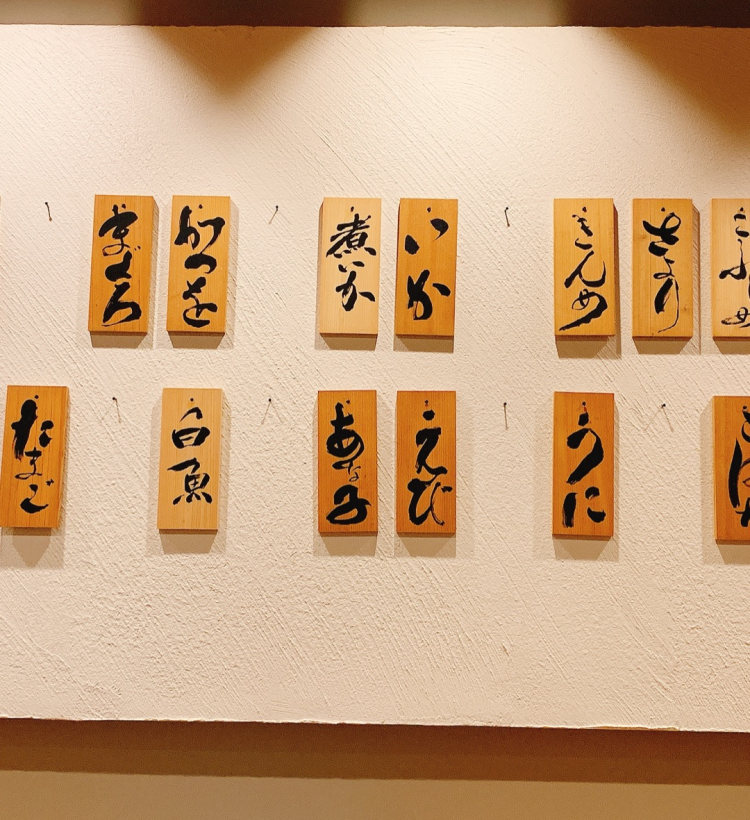 さより
きんめ
いか
煮いか
かつを
まぐろ
こはだ
うに
えび
あな子
白魚
たまご